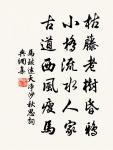 枯藤老樹昏鴉
小橋流水人家
古道西風瘦馬
馬致遠天淨沙秋思詞